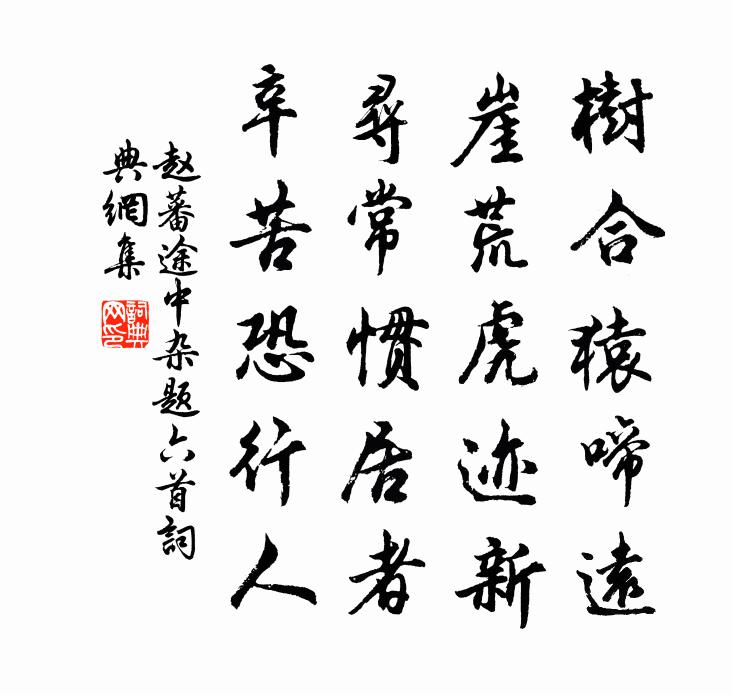 樹合猿啼遠
崖荒虎迹新
尋常慣居者
辛苦恐行人
赵蕃途中杂题六首詞
典網集
詞典
网印